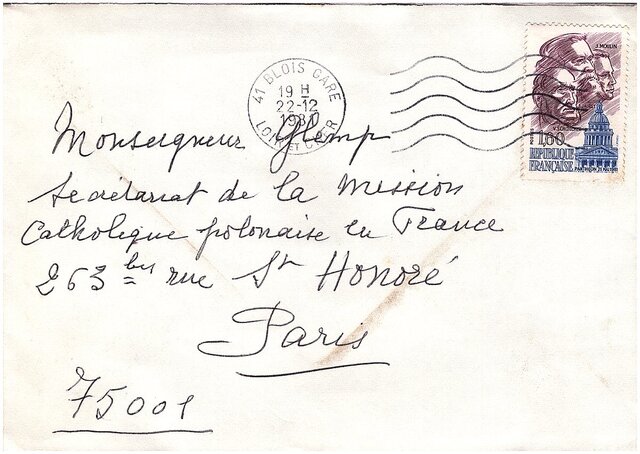 41 BLOIS GARE
19 H
22-12
1981
LOIR ET CHER
J.MOULIN
1,60
REPUBLIQUE
FRANÇAISE
Monseigneur Glemp
Secrétariat de la Mission
Catholique polonaise en France
263 bis rue St Honoré
Paris
75001